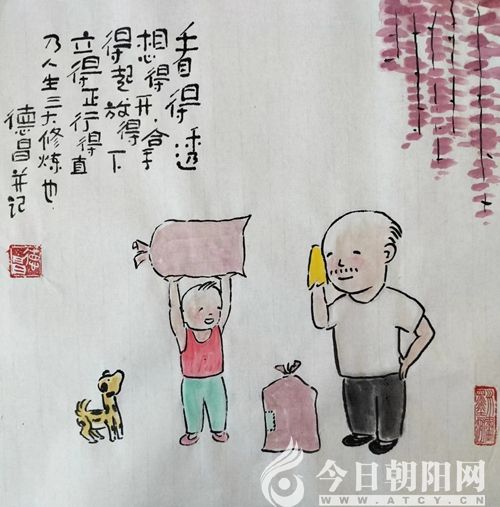 看得透
想得开.拿
得起放得下
立得正行得直
乃人生三大修炼也
德昌并记
德昌
今日朝阳网
WWW.ATCY.CN